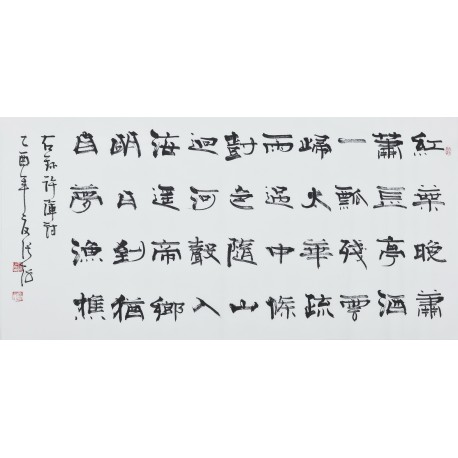 紅葉晚蕭
蕭長亭酒
一瓢殘雲
歸太華疏
雨過中條
樹色隨山
迥河聲入
海遥帝鄉
明日到猶
自夢漁樵
右錄許渾詩
乙酉年